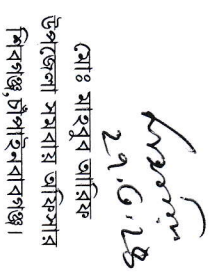 ২৭.৩.২৪
মোঃ মাহবুব আরিফ
উপজেলা সমবায় অফিসার
শিবগঞ্জ, চাঁপাইনবাবগঞ্জ।